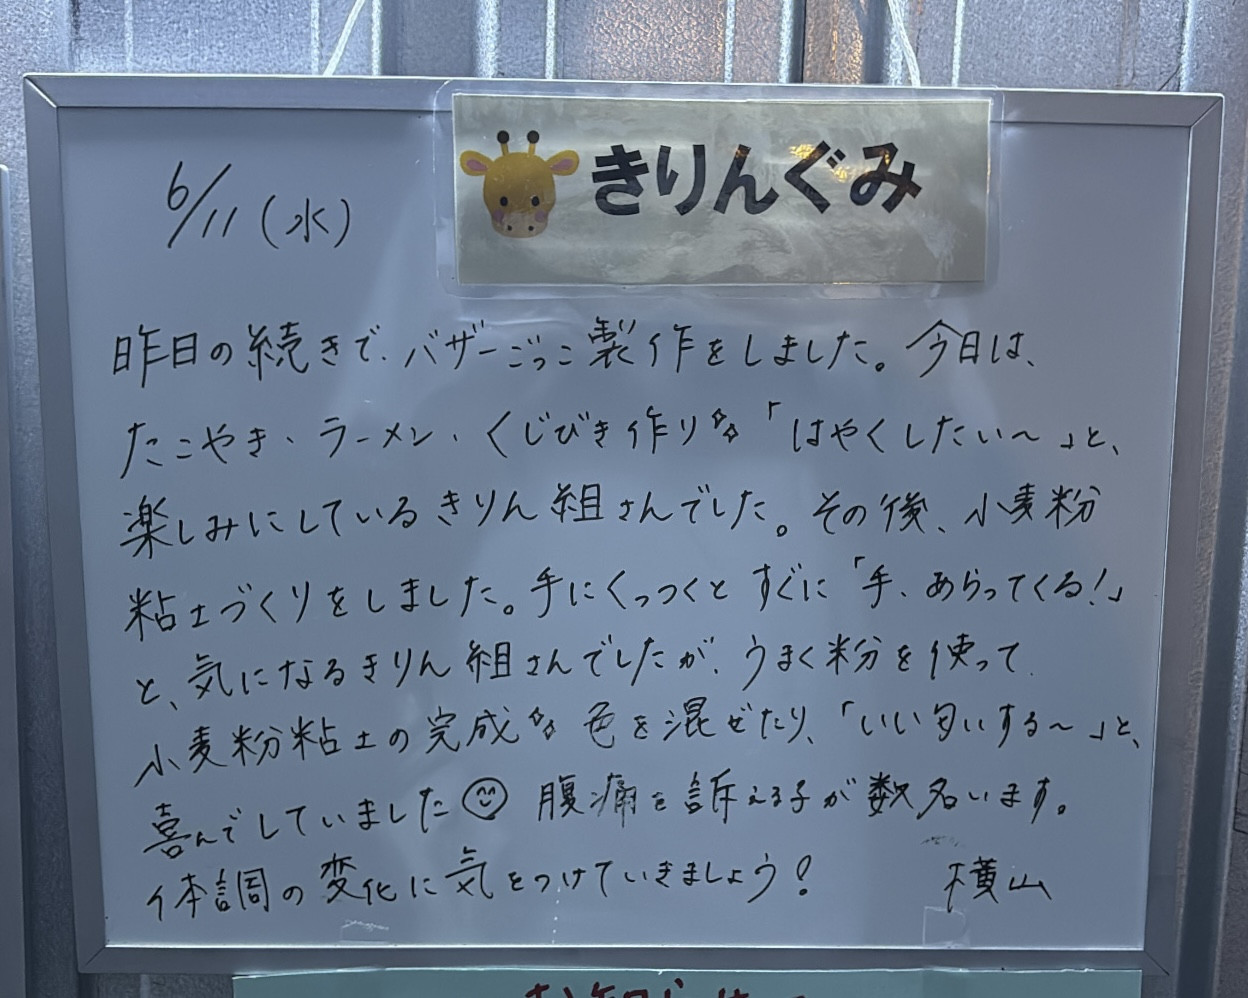 きりんぐみ
6/11(水)
昨日の続きで、バザーごっこ製作をしました。今日は、
たこやき、ラーメン、くじびき作り✨「はやくしたい〜」と、
楽しみにしているきりん組さんでした。その後、小麦粉
粘土づくりをしました。手にくっつくとすぐに「手、あらってくる!」
と、気になるきりん組さんでしたが、うまく粉を使って、
小麦粉粘土の完成✨色を混ぜたり、「いい匂いする〜」と、
喜んでしていました☺腹痛を訴える子が数名います。
体調の変化に気をつけていきましょう!
横山